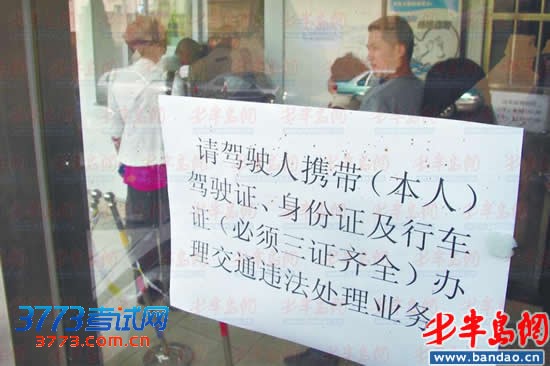 请驾驶人携带（本人）
驾驶证、身份证及行车
证（必须三证齐全）办
理交通违法处理业务
3773考试网
www.3773.com.cn
半岛网
www.bandao.cn